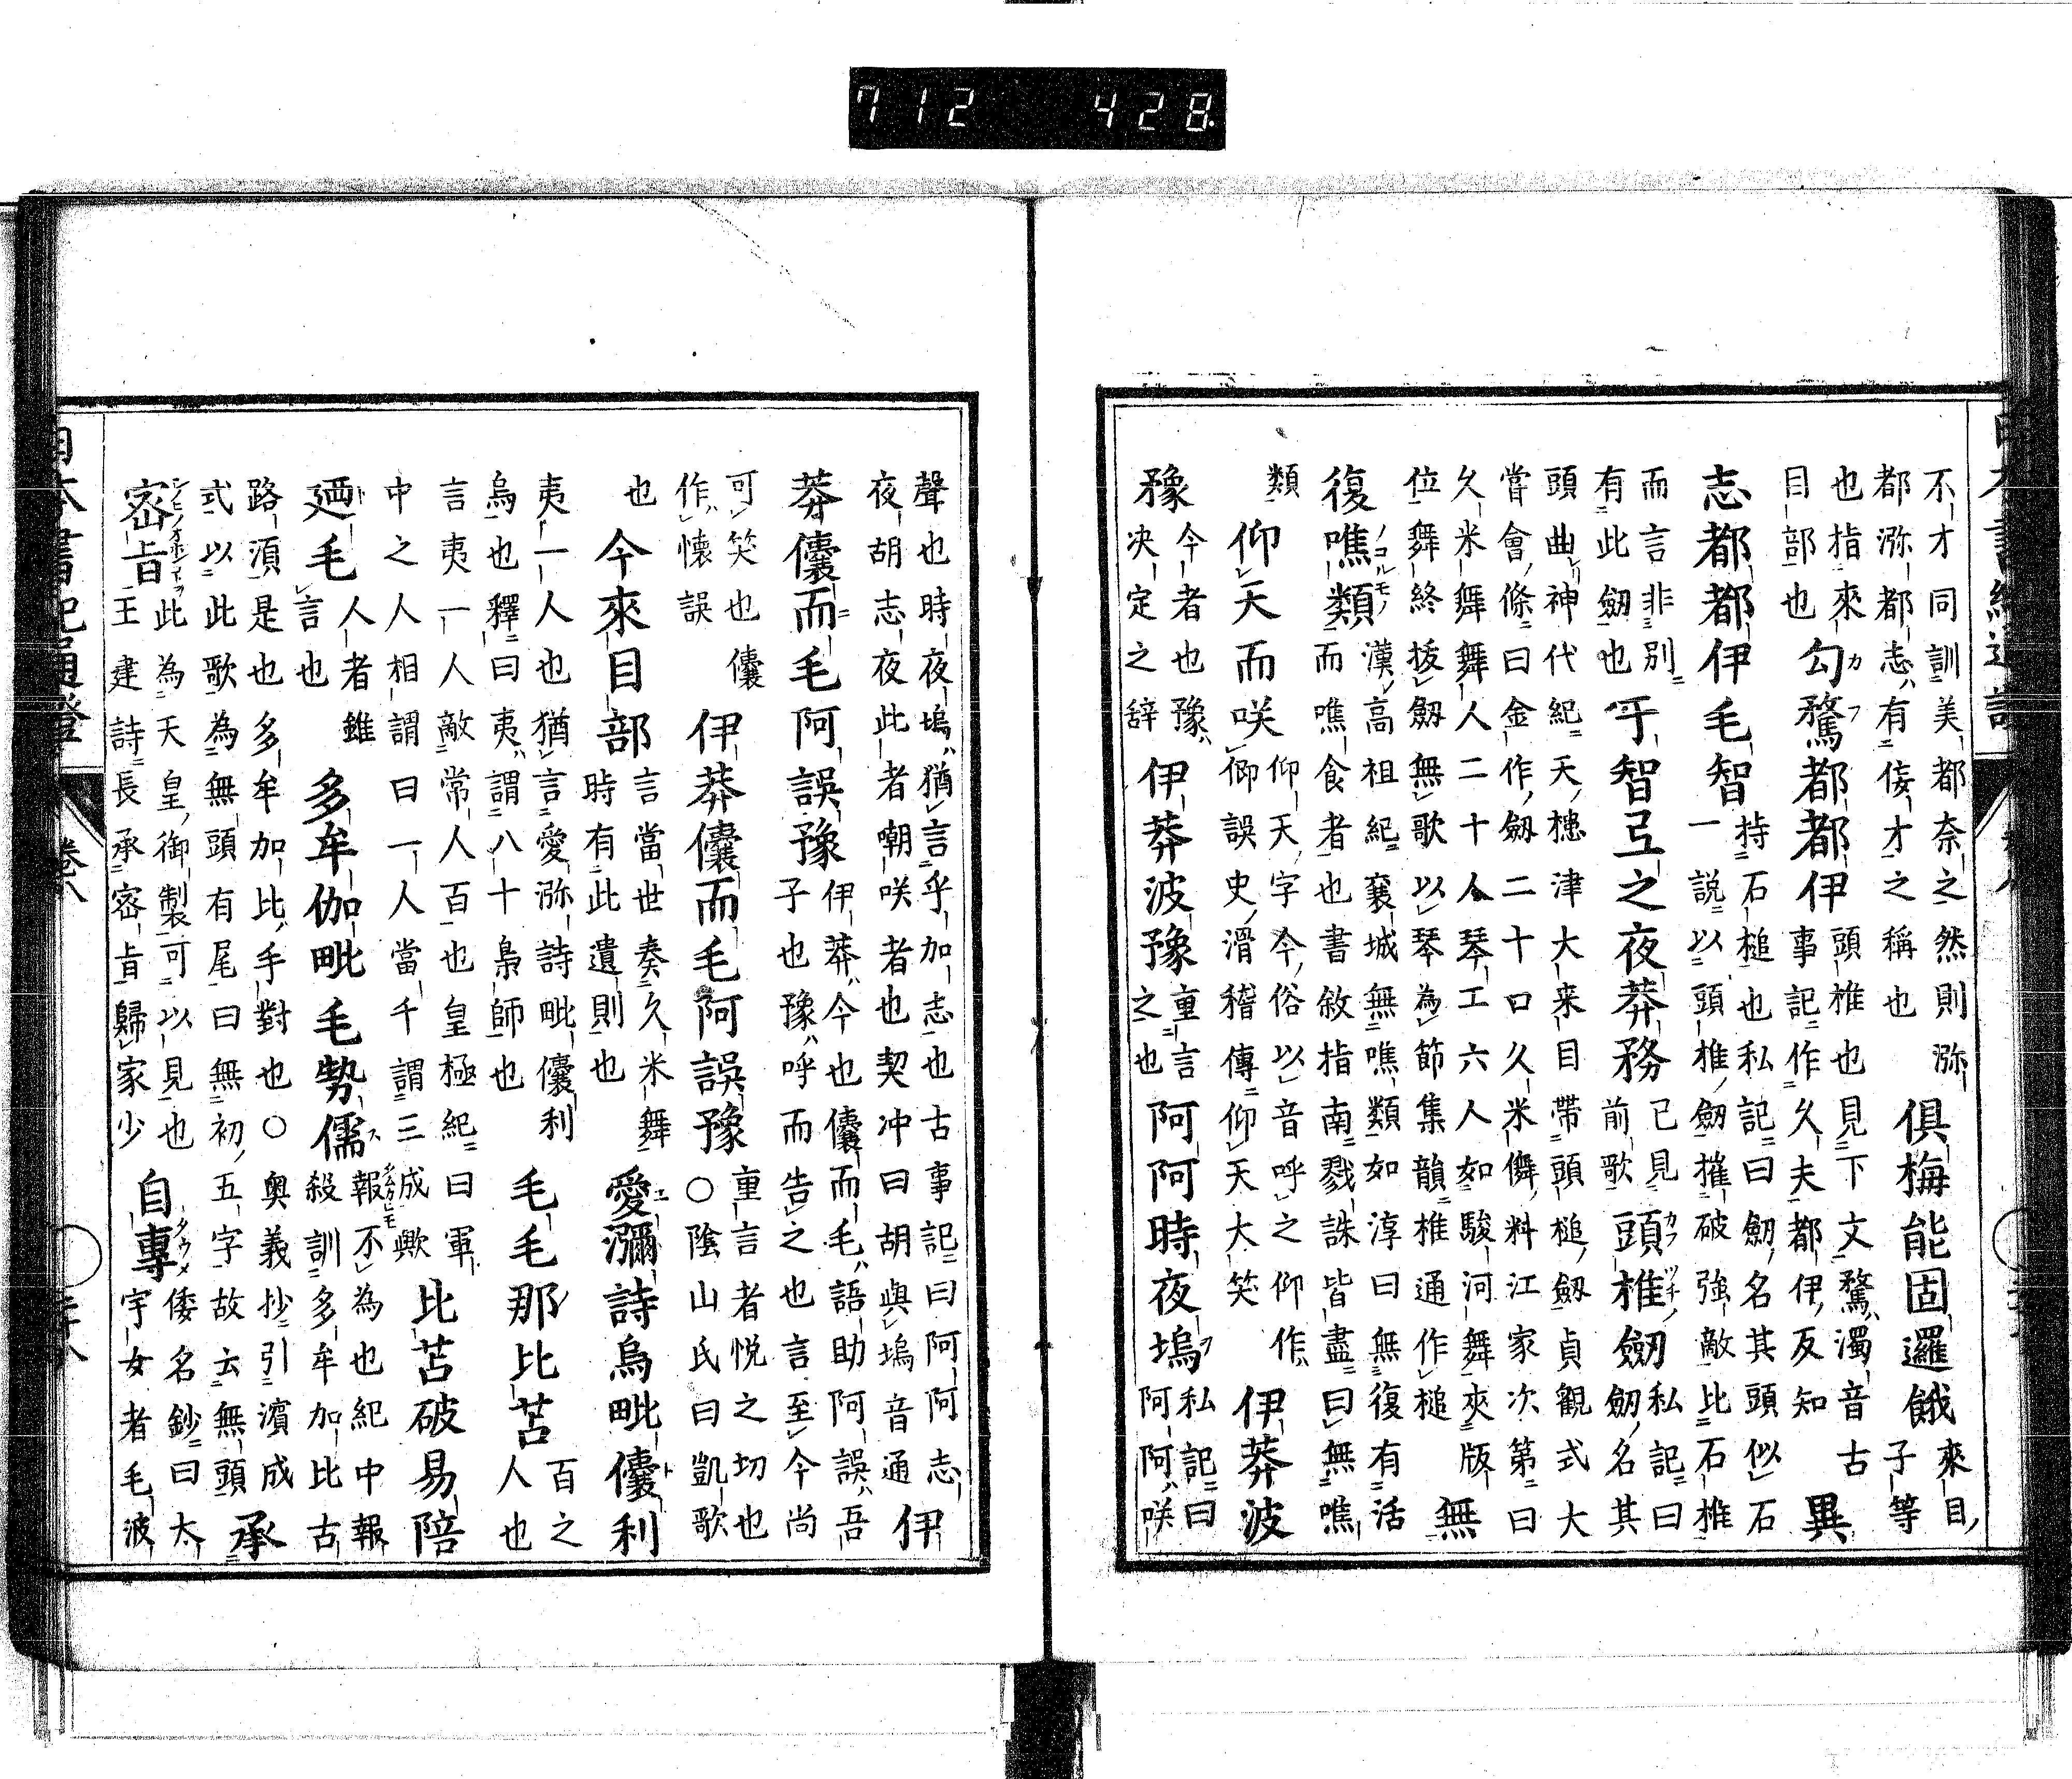 712 428
不才同訓美都奈之然則弥
都弥都志有倭才之稱也
俱梅能固邏餓
來目
子等
也指來
目部也
勾驁都都伊
頭椎也見下文驁濁音古
事記作久夫都伊反知
異
志都都伊毛智
持石槌也私記曰劒名其頭似石
一説以頭椎劒摧破強敵比石椎
而言非別
有此劒也
乎智弖之夜莽務
已見
前歌
頭椎劒
私記曰
劒名其
頭曲神代紀天槵津大来目帶頭槌劒貞觀式大
甞會條曰金作劒二十口久米儛料江家次第曰
久米舞舞人二十人琴工六人如駿河舞夾版
位舞終拔劒無歌以琴為節集韻椎通作槌
無
復噍類
漢高祖紀襄城無噍類如淳曰無復有活
而噍食者也書敘指南戮誅皆盡曰無噍
類
仰天而咲
仰天字今俗以音呼之仰作
仰誤史滑稽傳仰天大笑
伊莽波
豫
今者也豫
决定之辞
伊莽波豫
重言
之也
阿阿時夜塢
私記曰
阿阿咲
聲也時夜塢猶言乎加志也古事記曰阿阿志
夜胡志夜此者嘲咲者也契冲曰胡與塢音通
伊
莽儾而毛阿誤豫
伊莽今也儾而毛語助阿誤吾
子也豫呼而告之也言至今尚
可笑也儾
作懐誤
伊莽儾而毛阿誤豫
重言者悦之切也
○陰山氏曰凱歌
也
今來目部
言當世奏久米舞
時有此遺則也
愛瀰詩烏毗儾利
夷一人也猶言愛弥詩毗儾利
烏也釋曰夷謂八十梟師也
毛毛那比苫
百之
人也
言夷一人敵常人百也皇極紀曰軍
中之人相謂曰一人當千謂三成歟
比苫破易陪
廼毛
人者雖
言也
多牟伽毗毛勢儒
報不為也紀中報
殺訓多牟加比古
路湏是也多牟加比手對也○奥義抄引濱成
式以此歌為無頭有尾曰無初五字故云無頭
承
密旨
此為天皇御製可以見也
王建詩長承密旨歸家少
自專
倭名鈔曰太
宇女者毛波
日本書紀通證
卷八